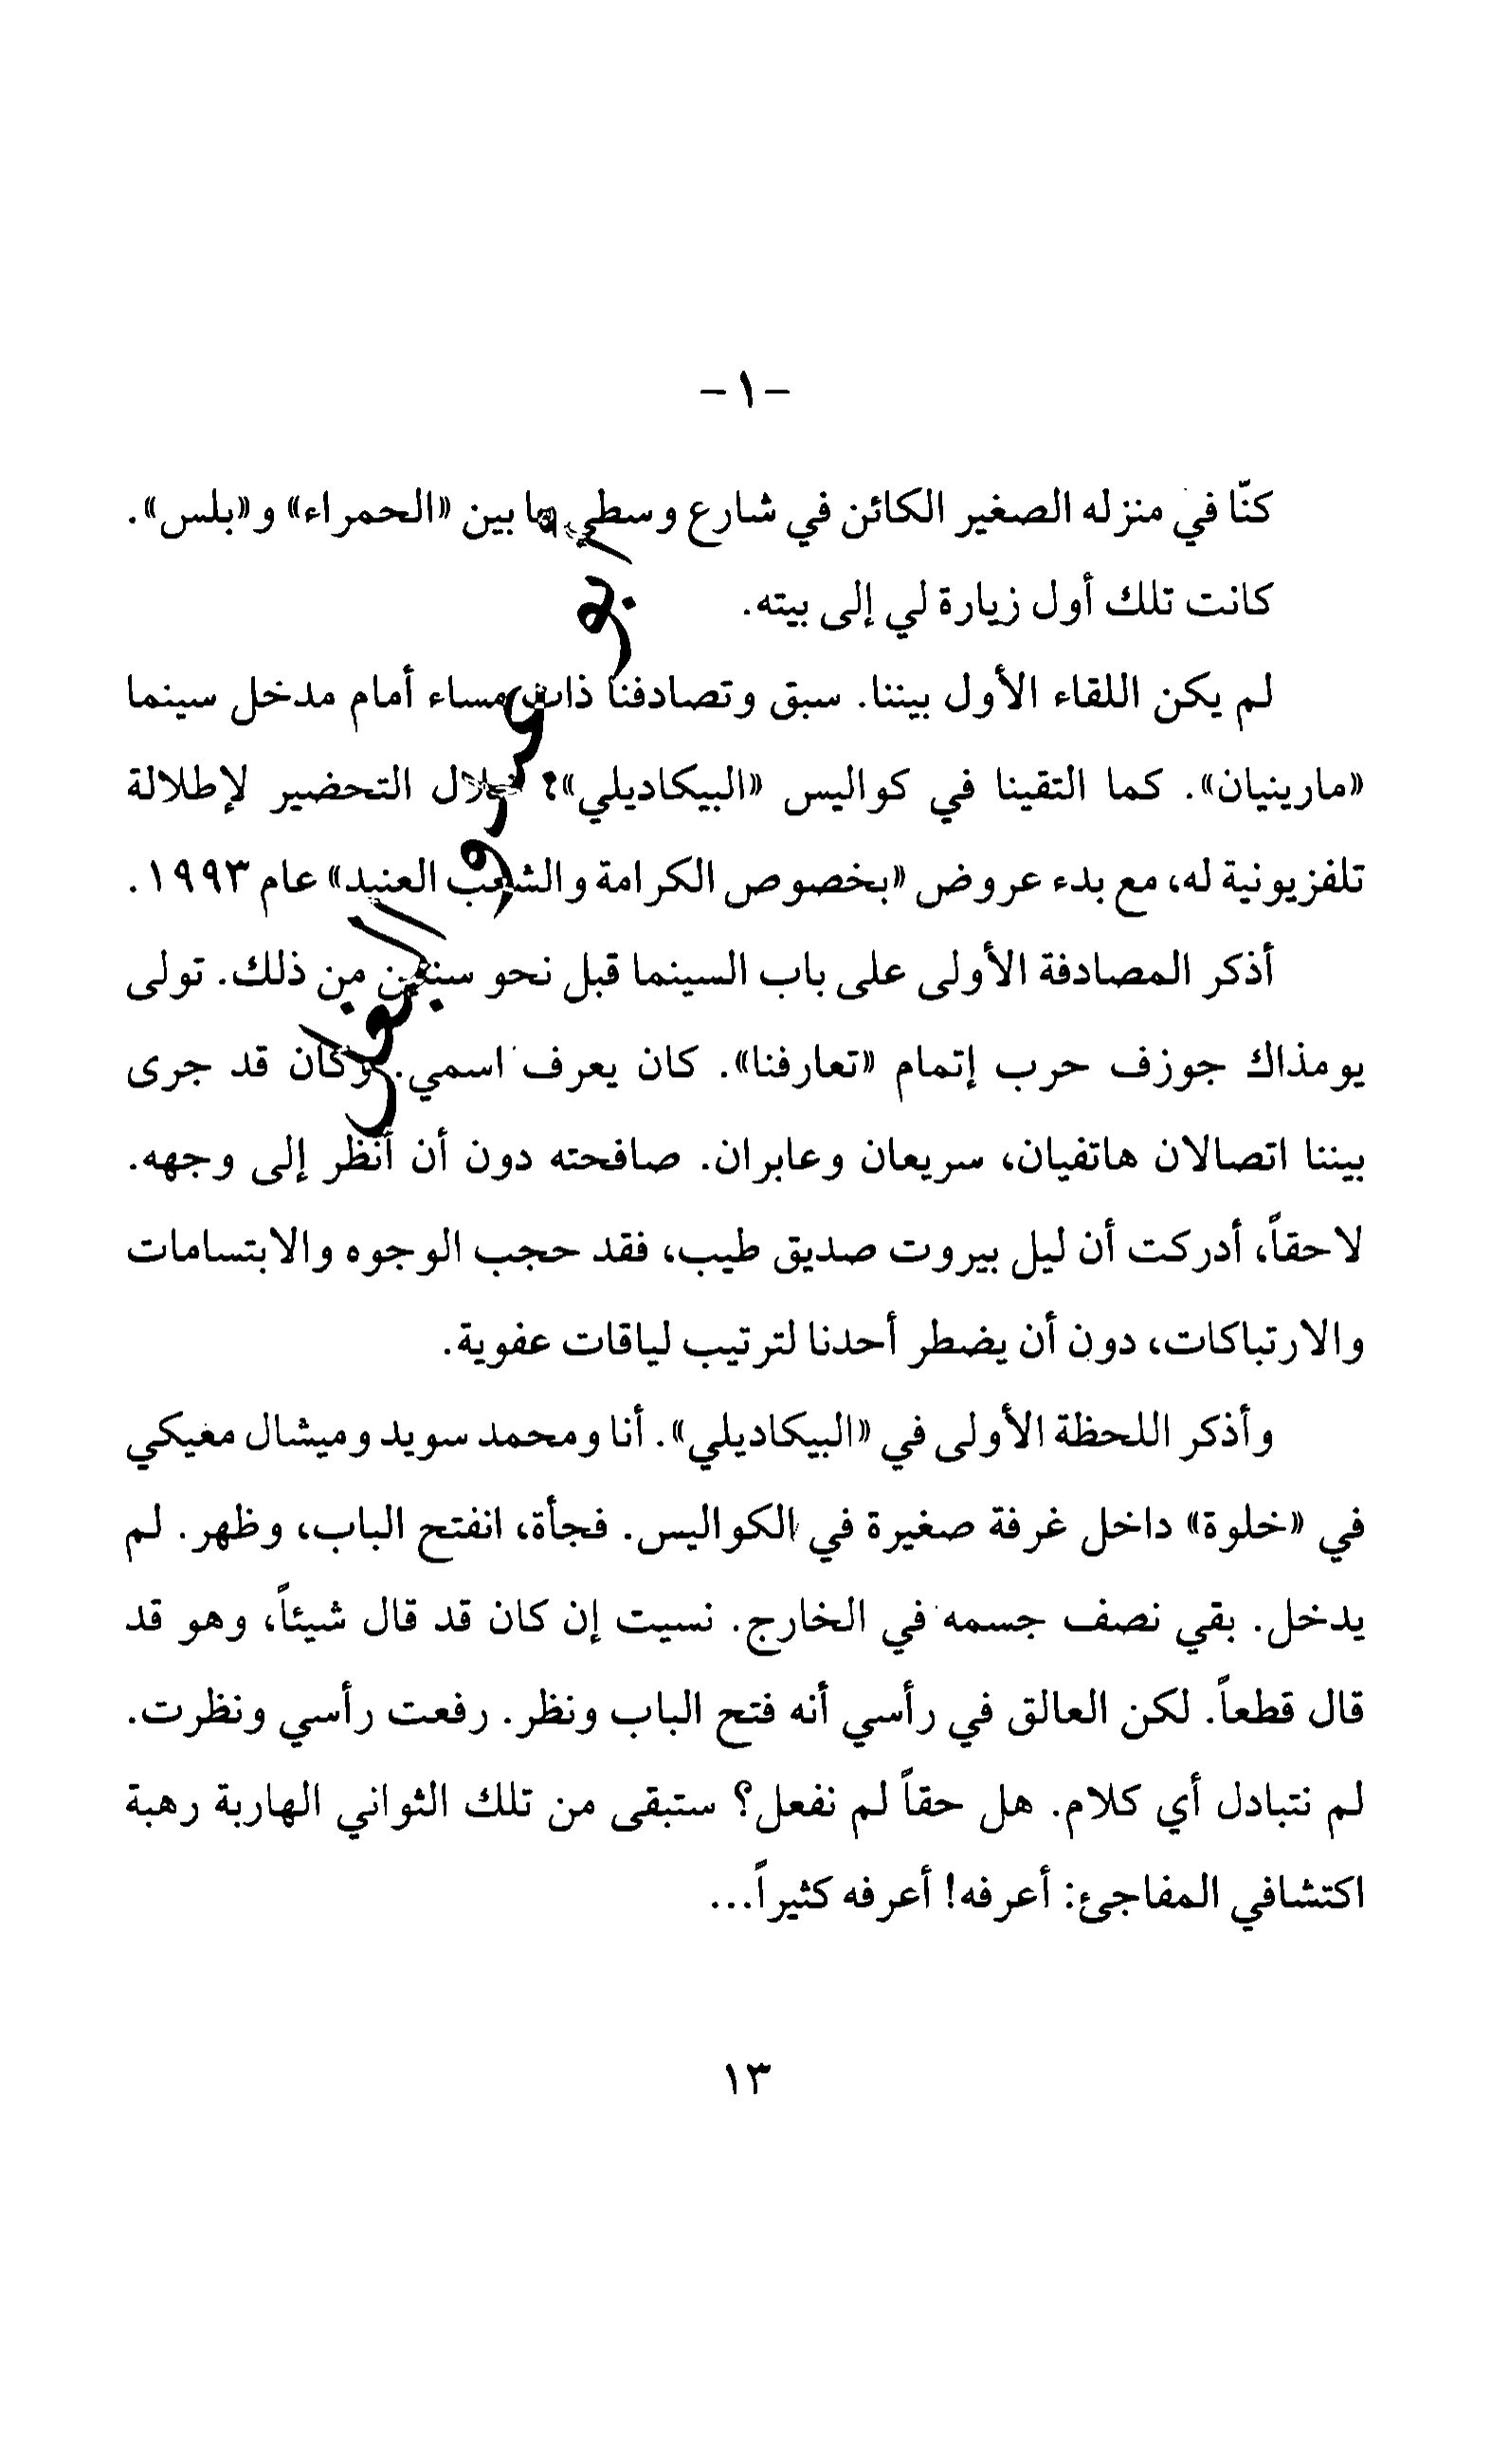 - ١ -
كنّا في منزله الصغير الكائن في شارع وسطي ما بين «الحمراء» و«بلس».
كانت تلك أول زيارة لي إلى بيته.
لم يكن اللقاء الأول بيننا. سبق وتصادفنا ذات مساء أمام مدخل سينما
«مارينيان». كما التقينا في كواليس «البيكاديلي» خلال التحضير لإطلالة
تلفزيونية له، مع بدء عروض «بخصوص الكرامة والشعب العنيد» عام ١٩٩٣.
أذكر المصادفة الأولى على باب السينما قبل نحو سنتين من ذلك. تولى
يومذاك جوزف حرب إتمام «تعارفنا». كان يعرف اسمي. وكان قد جرى
بيننا اتصالان هاتفيان، سريعان وعابران. صافحته دون أن أنظر إلى وجهه.
لاحقاً، أدركت أن ليل بيروت صديق طيب، فقد حجب الوجوه والابتسامات
والارتباكات، دون أن يضطر أحدنا لترتيب لياقات عفوية.
وأذكر اللحظة الأولى في «البيكاديلي». أنا ومحمد سويد وميشال معيكي
في «خلوة» داخل غرفة صغيرة في الكواليس. فجأة، انفتح الباب، وظهر. لم
يدخل. بقي نصف جسمه في الخارج. نسيت إن كان قد قال شيئاً، وهو قد
قال قطعاً. لكن العالق في رأسي أنه فتح الباب ونظر. رفعت رأسي ونظرت.
لم نتبادل أي كلام. هل حقاً لم نفعل؟ ستبقى من تلك الثواني الهاربة رهبة
اكتشافي المفاجئ: أعرفه! أعرفه كثيراً...
١٣